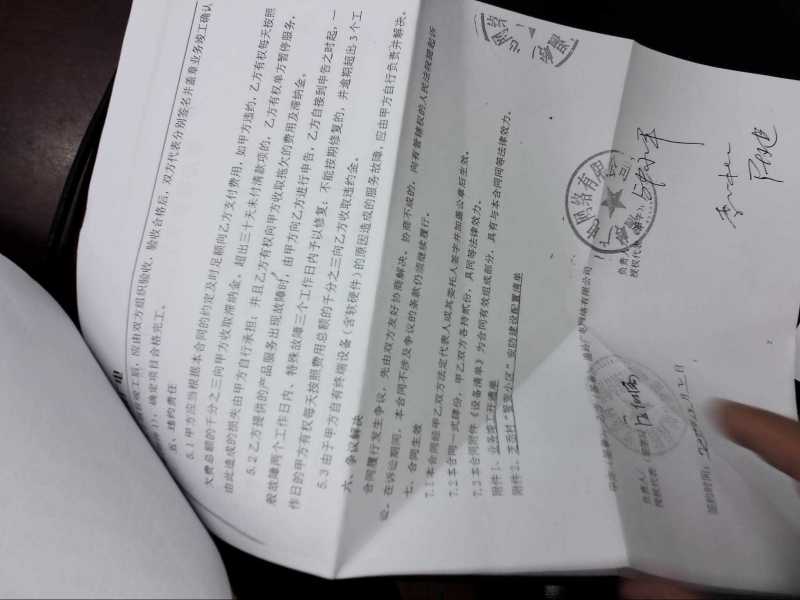 竣工后，应由双方组织验收，验收合格后，双方代表分别签名并盖章业务竣工确认
，确定项目合格完工。
五、违约责任
5.1 甲方应当根据本合同的约定及时足额向乙方支付费用，如甲方违约，乙方有权每天按照
欠费总额的千分之三向甲方收取滞纳金。超出三十天未付清款项的，乙方有权单方暂停服务，
由此造成的损失由甲方自行承担；并且乙方有权向甲方收取拖欠的费用及滞纳金。
5.2 乙方提供的产品服务出现故障时，由甲方向乙方进行申告，乙方自接到申告之时起，一
般故障两个工作日内、特殊故障三个工作日内予以修复；不能按期修复的，并逾期超出 3 个工
作日的甲方有权每天按照费用总额的千分之三向乙方收取违约金。
5.3 由于甲方自有终端设备（含软硬件）的原因造成的服务故障，应由甲方自行负责并解决。
六、争议解决
合同履行发生争议，先由双方友好协商解决，协商不成的，向有管辖权的人民法院提起诉
讼。在诉讼期间，本合同不涉及争议的条款仍须继续履行。
七、合同生效
7.1 本合同经甲乙双方法定代表人或其委托人签字并加盖公章后生效。
7.2 本合同一式肆份，甲乙双方各持贰份，具同等法律效力。
7.3 本合同附件《设备清单》为合同有效组成部分，具有与本合同同等法律效力。
附件 1、业务竣工开通单
附件 2、
安防建设配置清单
网络有限公司
负责人：
授权代表
负责人
授权代表
签约时间：